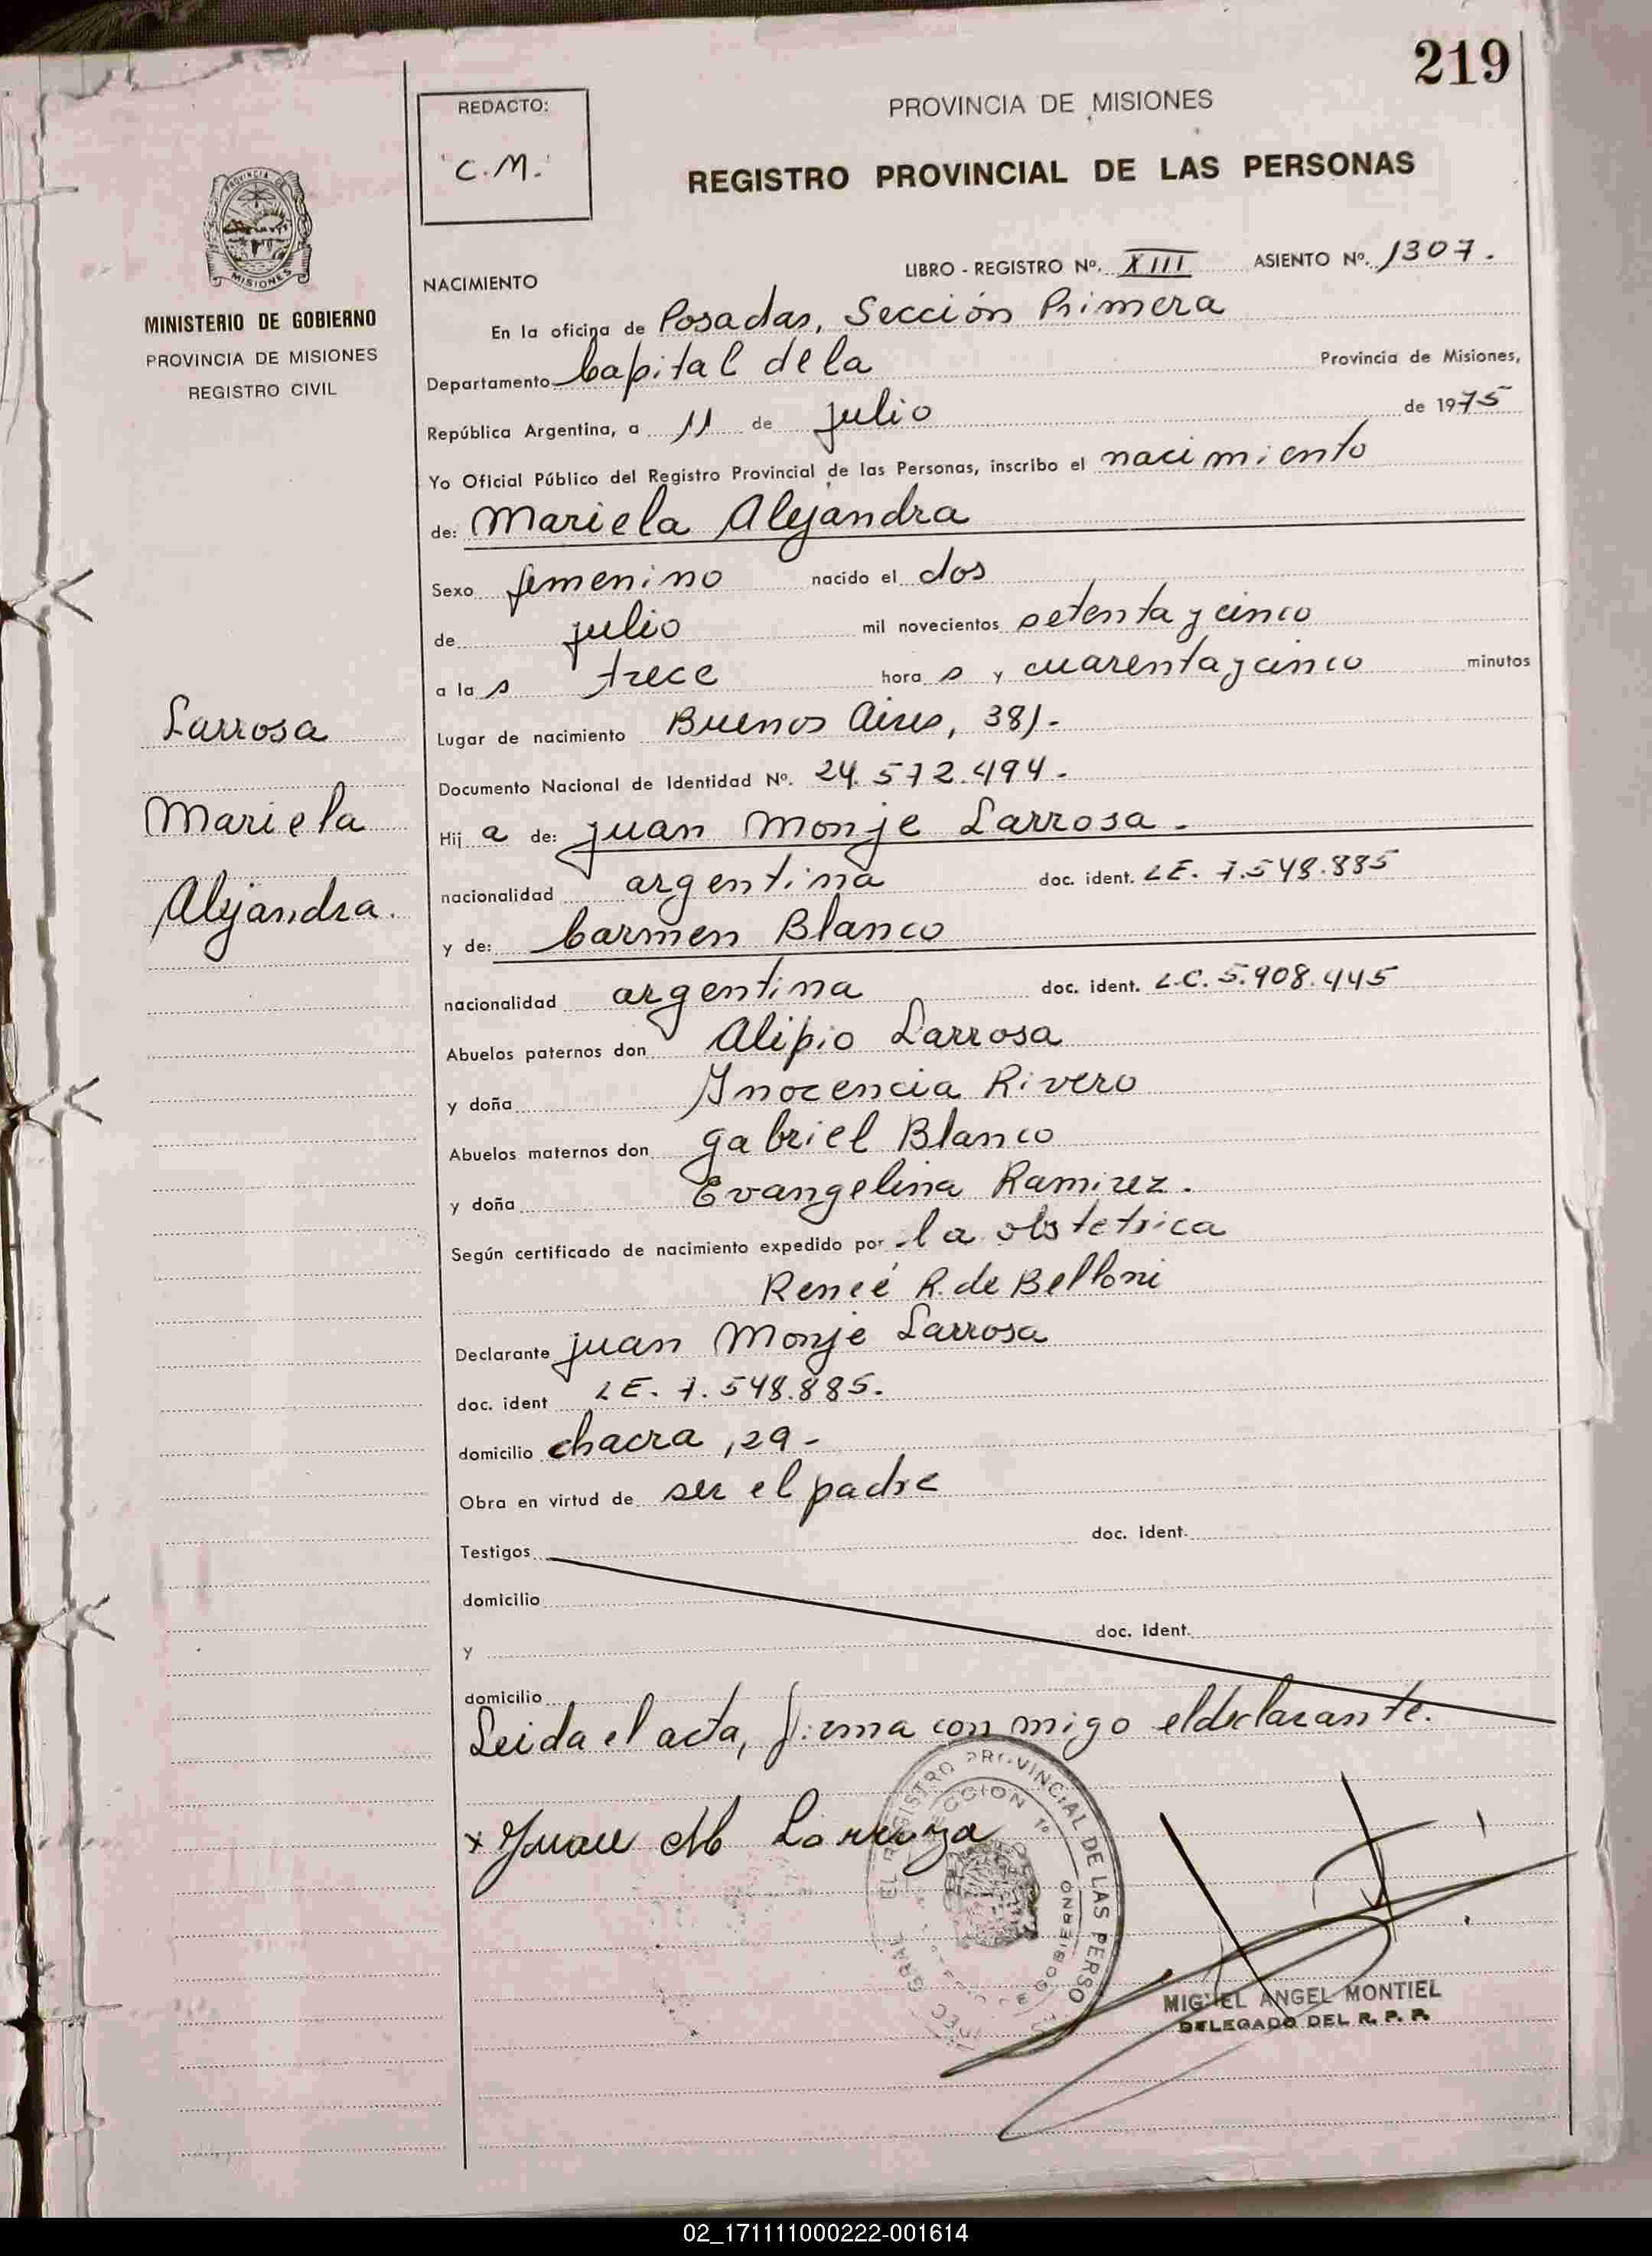 219
REDACTO:
C.M.
PROVINCIA DE MISIONES
REGISTRO PROVINCIAL DE LAS PERSONAS
PROVINCIA DE
MISIONES
MINISTERIO DE GOBIERNO
PROVINCIA DE MISIONES
REGISTRO CIVIL
LIBRO - REGISTRO Nº. XIII ASIENTO Nº. 1307.
NACIMIENTO
En la oficina de Posadas, Sección Primera
Departamento Capital de la Provincia de Misiones,
República Argentina, a 11 de julio de 1975
Yo Oficial Público del Registro Provincial de las Personas, inscribo el nacimiento
de: Mariela Alejandra
Sexo femenino nacido el dos
de julio mil novecientos setenta y cinco
a la s trece hora s y cuarenta y cinco minutos
Lugar de nacimiento Buenos Aires, 381.-
Documento Nacional de Identidad Nº. 24.572.494.-
Hij a de: Juan Monje Larrosa.-
nacionalidad argentina doc. ident. LE. 7.548.885
y de: Carmen Blanco
nacionalidad argentina doc. ident. L.C. 5.908.445
Abuelos paternos don Alipio Larrosa
y doña Inocencia Rivero
Abuelos maternos don Gabriel Blanco
y doña Evangelina Ramirez.
Según certificado de nacimiento expedido por la obstetrica
Reneé R. de Belloni
Declarante Juan Monje Larrosa
doc. ident LE. 7.548.885.
domicilio chacra, 29-
Obra en virtud de ser el padre
Testigos doc. ident.
domicilio
y doc. ident.
domicilio
Leida el acta, firma con migo el declarante.
Larrosa
Mariela
Alejandra.
x Juan M Larroza
REGISTRO PROVINCIAL DE LAS PERSO
SECCION 1º
GOBIERNO
MIGUEL ANGEL MONTIEL
DELEGADO DEL R. P. P.
02_171111000222-001614